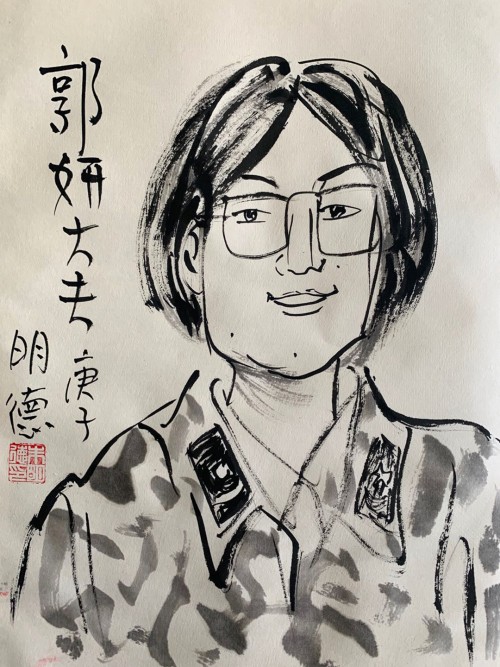 郭妍大夫
庚子
明德